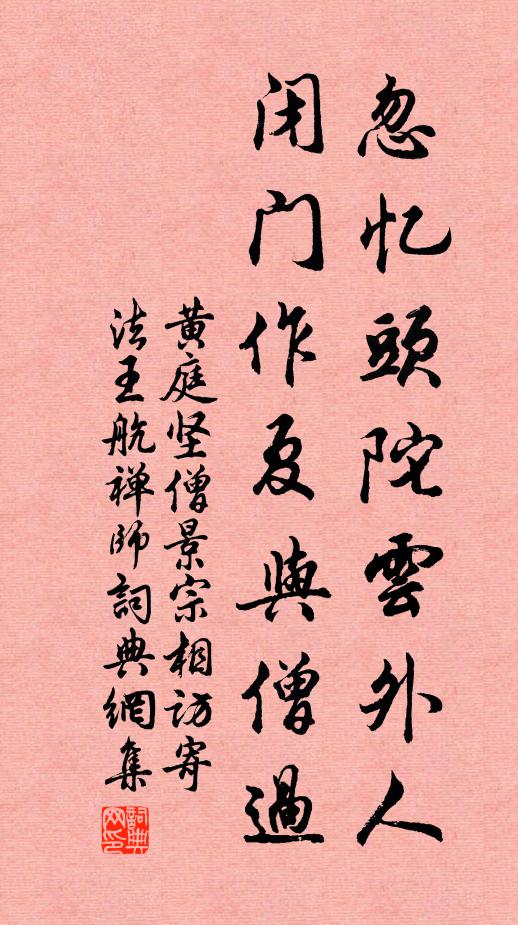 忽忆頭陀雲外人
闭门作夏與僧過
黄庭坚僧景宗相访寄
法王航禅师詞典網集
詞典网印